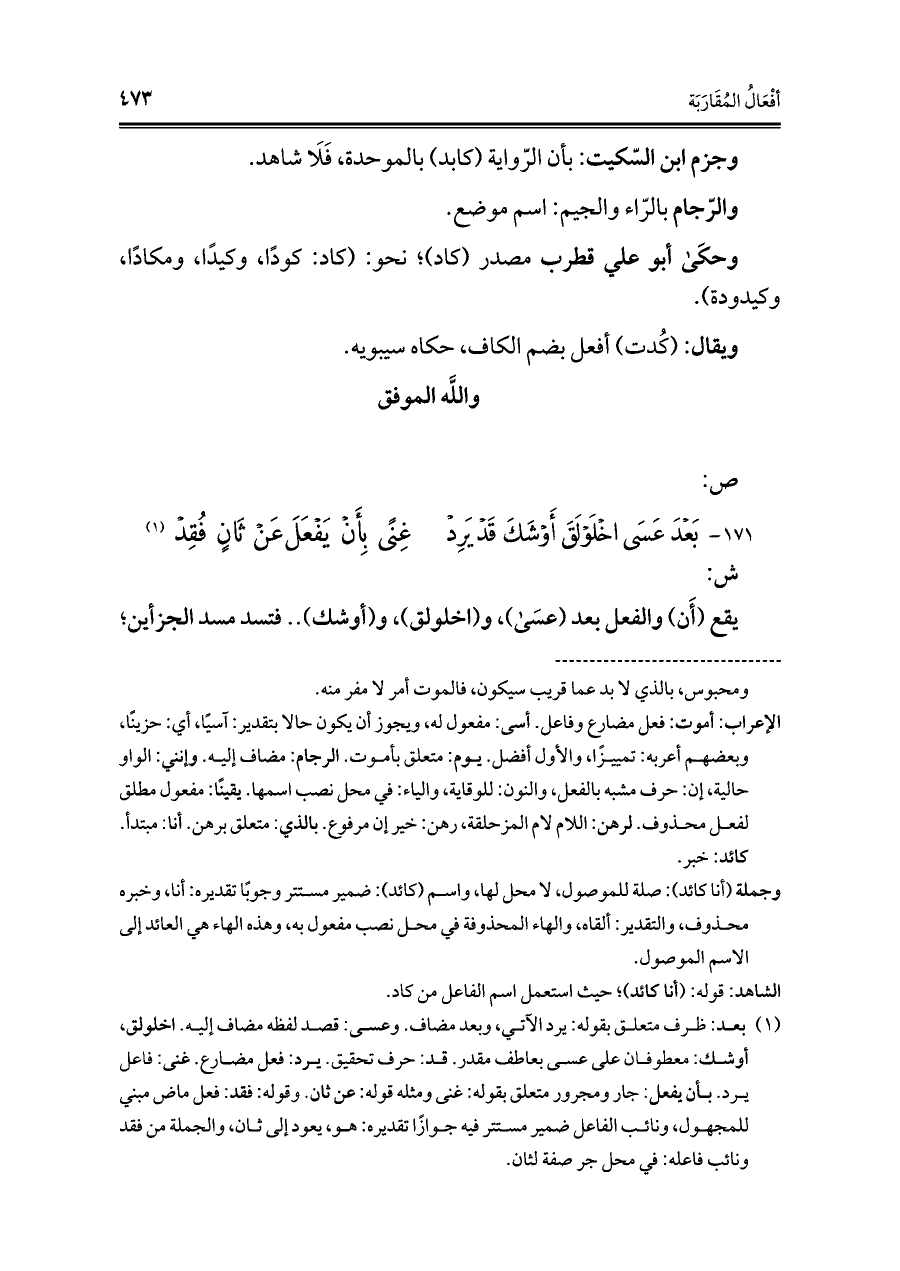 أفْعَالُ المُقَارَبَة ٤٧٣
وجزم ابن السّكيت: بأن الرّواية (كابد) بالموحدة، فَلَا شاهد.
والرّجام بالرّاء والجيم: اسم موضع.
وحكَىٰ أبو علي قطرب مصدر (كاد)؛ نحو: (كاد: كودًا، وكيدًا، ومكادًا،
وكيدودة).
ويقال: (كُدت) أفعل بضم الكاف، حكاه سيبويه.
واللَّه الموفق
ص:
١٧١- بَعْدَ عَسَى اخْلَوْلَقَ أَوْشَكَ قَدْ يَرِدْ غِنًى بِأَنْ يَفْعَلَ عَنْ ثَانٍ فُقِدْ (١)
ش:
يقع (أَن) والفعل بعد (عسَىٰ)، و(اخلولق)، و(أوشك).. فتسد مسد الجزأين؛
ومحبوس، بالذي لا بد عما قريب سيكون، فالموت أمر لا مفر منه.
الإعراب: أموت: فعل مضارع وفاعل. أسى: مفعول له، ويجوز أن يكون حالا بتقدير: آسيًا، أي: حزينًا،
وبعضهم أعربه: تمييزًا، والأول أفضل. يوم: متعلق بأموت. الرجام: مضاف إليه. وإنني: الواو
حالية، إن: حرف مشبه بالفعل، والنون: للوقاية، والياء: في محل نصب اسمها. يقينًا: مفعول مطلق
لفعل محذوف. لرهن: اللام لام المزحلقة، رهن: خير إن مرفوع. بالذي: متعلق برهن. أنا: مبتدأ.
كائد: خبر.
وجملة (أنا كائد): صلة للموصول، لا محل لها، واسم (كائد): ضمير مستتر وجوبًا تقديره: أنا، وخبره
محذوف، والتقدير: ألقاه، والهاء المحذوفة في محل نصب مفعول به، وهذه الهاء هي العائد إلى
الاسم الموصول.
الشاهد: قوله: (أنا كائد)؛ حيث استعمل اسم الفاعل من كاد.
(١) بعد: ظرف متعلق بقوله: يرد الآتي، وبعد مضاف. وعسى: قصد لفظه مضاف إليه. اخلولق،
أوشك: معطوفان على عسى بعاطف مقدر. قد: حرف تحقيق. يرد: فعل مضارع. غنى: فاعل
يرد. بأن يفعل: جار ومجرور متعلق بقوله: غنى ومثله قوله: عن ثان. وقوله: فقد: فعل ماض مبني
للمجهول، ونائب الفاعل ضمير مستتر فيه جوازًا تقديره: هو، يعود إلى ثان، والجملة من فقد
ونائب فاعله: في محل جر صفة لثان.